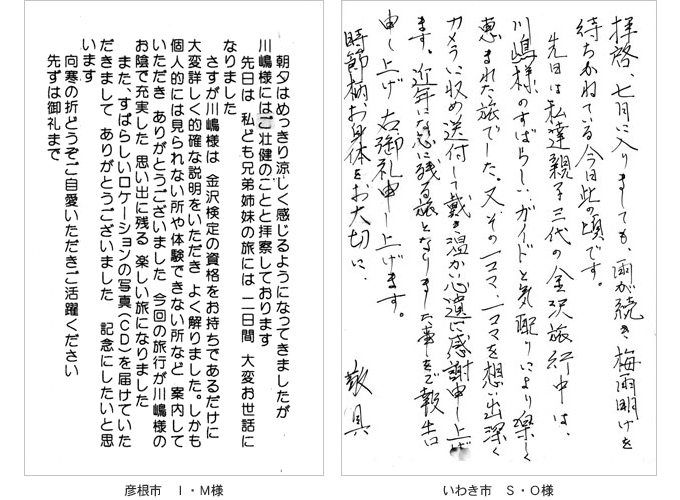 朝夕はめっきり涼しく感じるようになってきましたが
川嶋様にはご壮健のことと拝察しております
先日は 私ども兄弟姉妹の旅には 二日間 大変お世話に
なりました
さすが川嶋様は 金沢検定の資格をお持ちであるだけに
大変詳しく的確な説明をいただき よく解りました。しかも
個人的には見られない所や体験できない所など 案内して
いただき ありがとうございました 今回の旅行が川嶋様の
お陰で充実した 思い出に残る 楽しい旅になりました
また、すばらしいロケーションの写真(CD)を届けていた
だきまして ありがとうございました 記念にしたいと思
います
向寒の折どうぞご自愛いただきご活躍ください
先ずは御礼まで
彦根市 I・M様
拝啓、七月に入りましても雨が続き梅雨明けを
待ちかねている今日此の頃です。
先日は私達親子三代の金沢旅行中は、
川嶋様のすばらしいガイドと気配りにより楽しく
恵まれた旅でした。又その一コマ、一コマを想い出深く
カメラに収め送付して戴き温かい心遣に感謝申し上げ
ます。近年になく心に残る旅となりました事をご報告
申し上げ右御礼申し上げます。
時節柄お身体をお大切に、
敬具
いわき市 S・O様